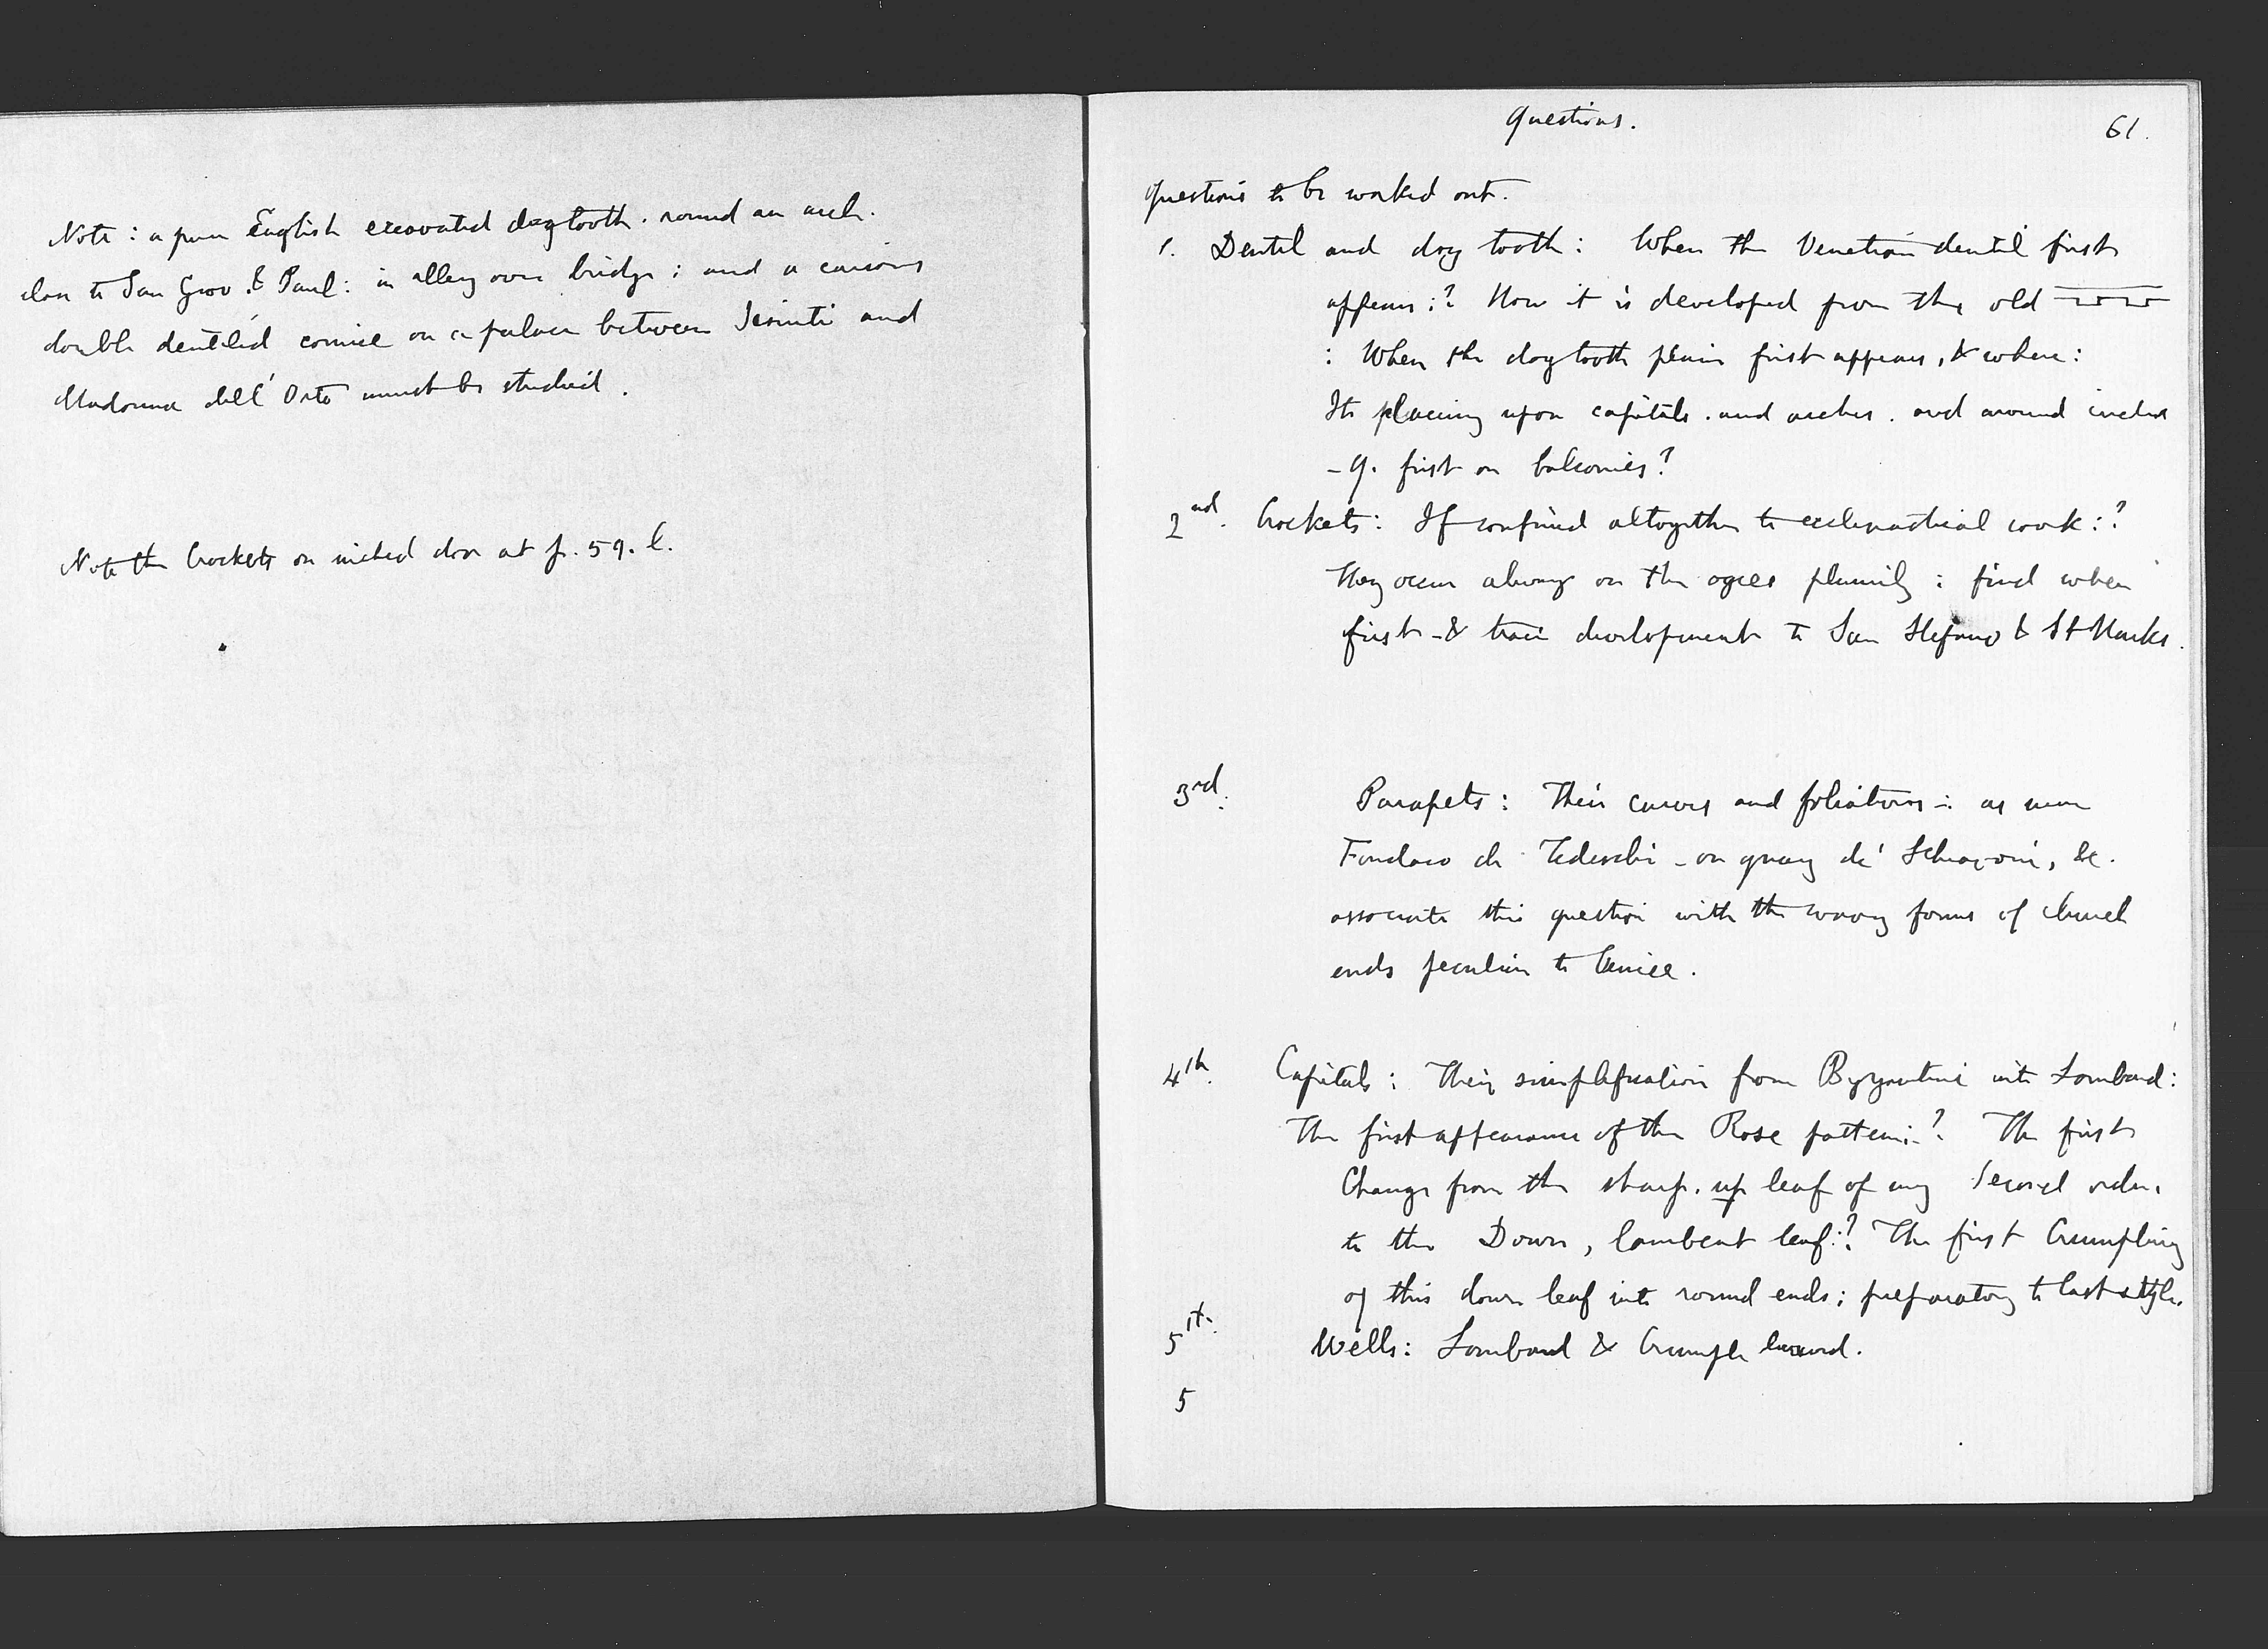 Note: a pure English excavated dogtooth. round an arch.
close to San Giov. & Paul: in alley over bridge: and a curious
double dentiled cornice on a palace between Jesuiti and
Madonna dell' Orto must be studied.
Note the Crockets on niched door at p. 59. l.
Questions.
61.
Questions to be worked out.
1. Dentil and dog tooth: When the Venetian dentil first
appears:? How it is developed from the old
: When the dogtooth plain first appears, & where:
Its placing upon capitals. and arches. and around circles
- q. first on balconies?
2nd. Crockets: If confined altogether to ecclesiastical work:?
They occur always on the ogees plainly: find when
first - & trace development to San Stefano & St Marks.
3rd. Parapets: Their curves and foliations -: as near
Fondaco de Tedeschi - on quay de' Schiavoni, &c.
associate this question with the wavy forms of church
ends peculiar to Venice.
4th. Capitals: Their simplification from Byzantine into Lombard:
The first appearance of the Rose pattern:? The first
Change from the sharp. up leaf of my Second order.
to the Down, lambent leaf:? The first Crumpling
of this down leaf into round ends; preparatory to last style.
5th. Wells: Lombard & Crumple leaved.
5